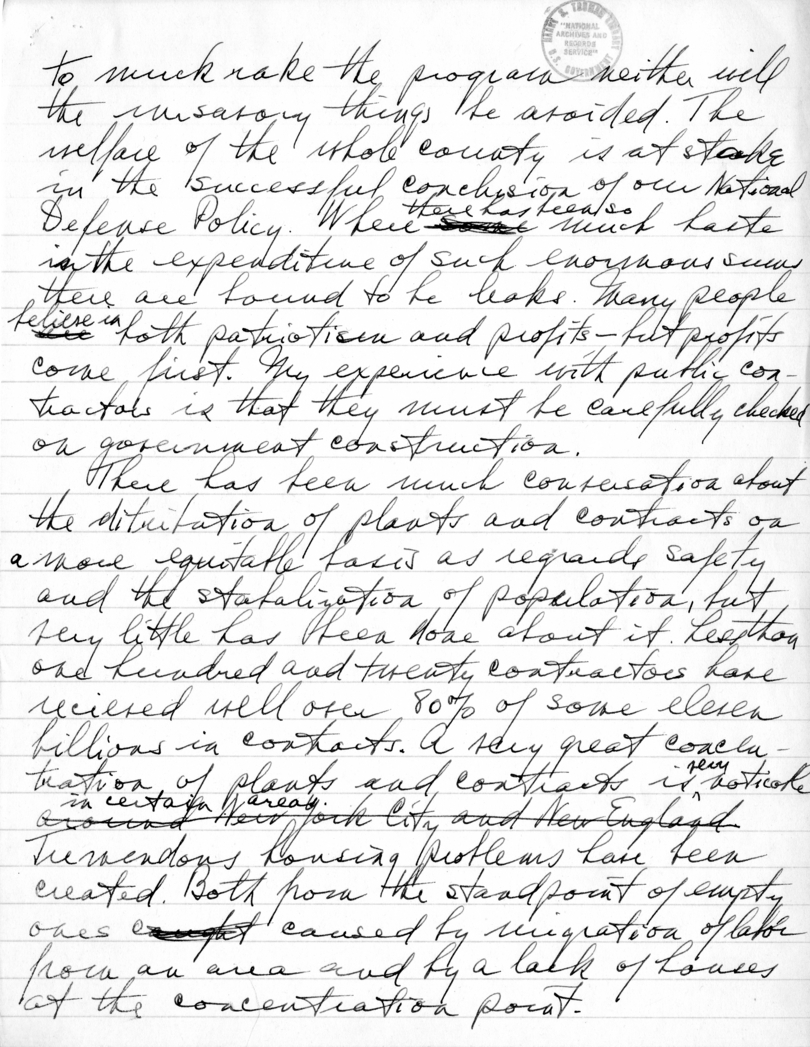 HARRY S. TRUMAN LIBRARY
"NATIONAL
ARCHIVES AND
RECORDS
SERVICE"
U.S. GOVERNMENT
to muck rake the program neither will
the unsavory things be avoided. The
welfare of the whole county is at stake
in the successful conclusion of our National
there has been so
Defense Policy. Where some much haste
in the expenditure of such enormous sums
there are bound to be leaks. Many people
believe in
are both patriotism and profits – but profits
come first. My experience with public con-
tractors is that they must be carefully checked
on government construction.
There has been much conversation about
the ditribution of plants and contracts on
a more equitable basis as regards safety
and the stabalization of population, but
very little has been done about it. Less than
one hundred and twenty contractors have
recieved well over 80% of some eleven
billions in contracts. A very great concen-
tration of plants and contracts is very noticable
in certain areas.
around New York City and New England.
Tremendous housing problems have been
created. Both from the standpoint of empty
ones caught caused by migration of labor
from an area and by a lack of houses
at the concentration point.